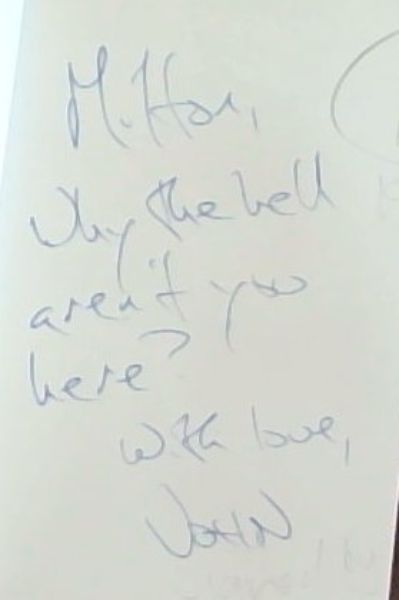 Milton,
Why the hell
aren't you
here?
With love,
JOHN